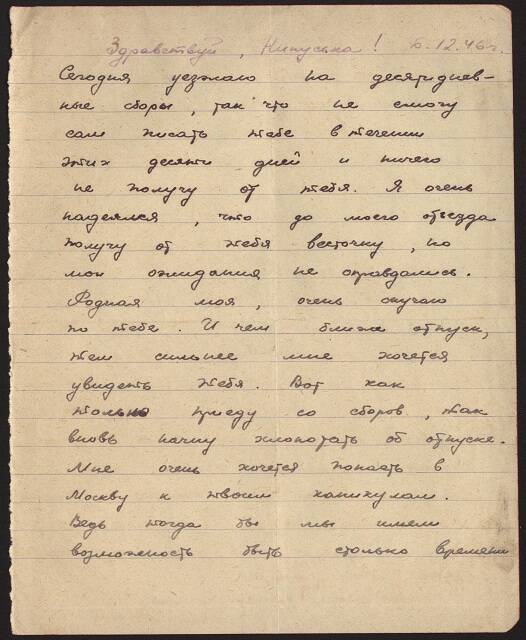 Здравствуй, Нинуська! 6.12.46 г.
Сегодня уезжаю на десятиднев-
ные сборы, так что не смогу
сам писать тебе в течении
этих десяти дней и ничего
не получу от тебя. Я очень
надеялся, что до моего отъезда
получу от тебя весточку, но
мои ожидания не оправдались.
Родная моя, очень скучаю
по тебе. И чем ближе отпуск,
тем сильнее мне хочется
увидеть тебя. Вот как
только приеду со сборов, так
вновь начну хлопотать об отпуске.
Мне очень хочется попасть в
Москву к твоим каникулам.
Ведь тогда бы мы имели
возможность быть столько времени